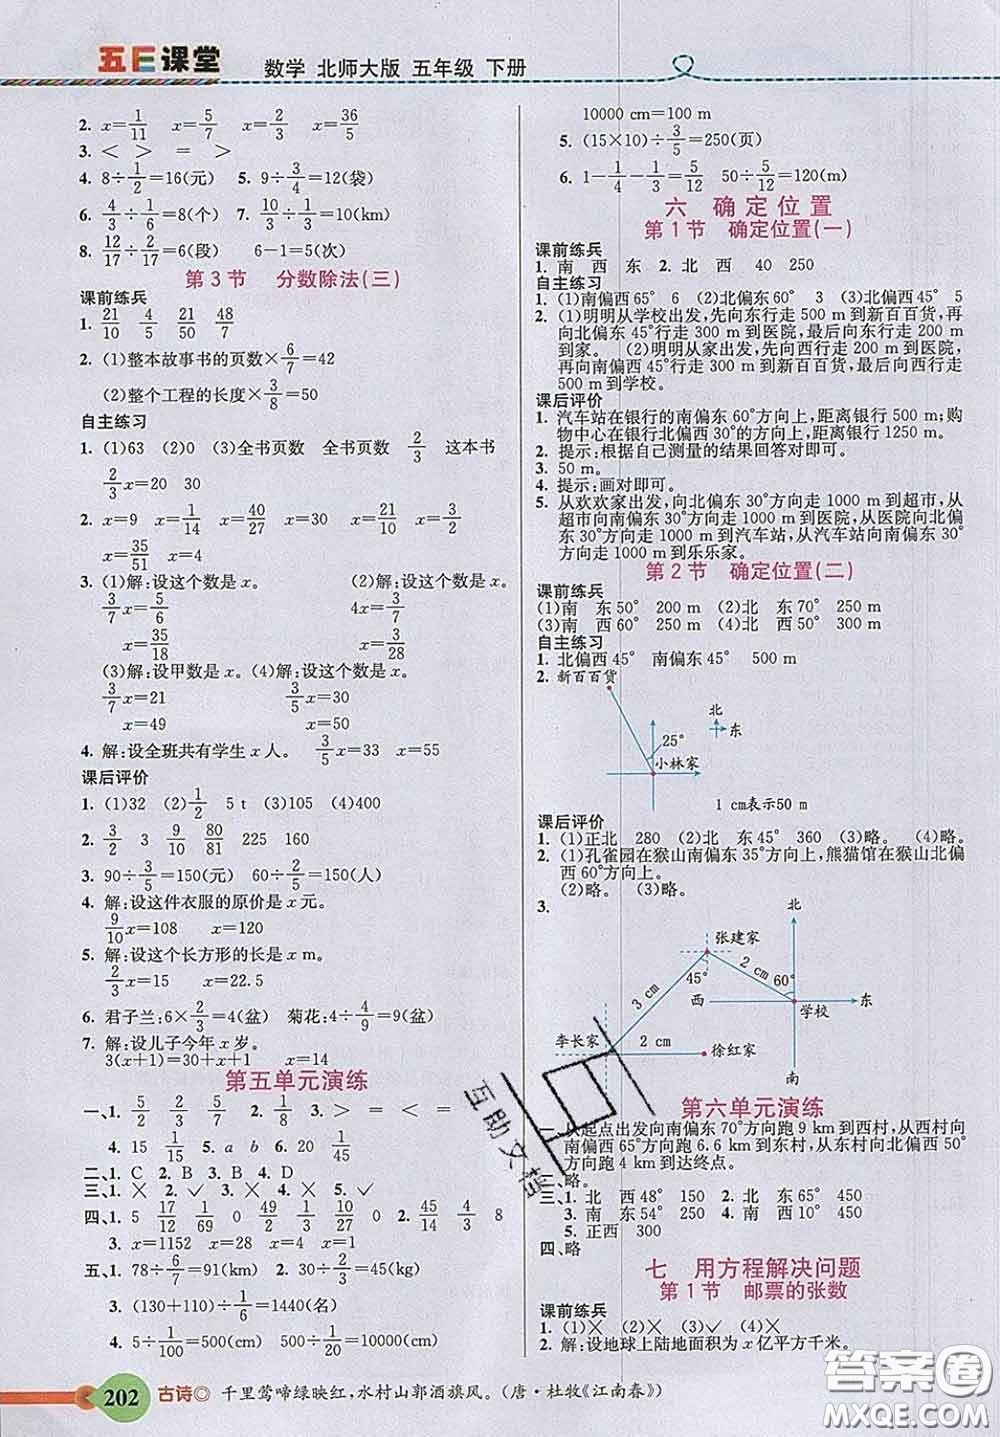 五E课堂 数学 北师大版 五年级 下册
2. x=1/11 x=5/7 x=2/3 x=36/5
3. < > = >
4. 8÷1/2=16(元) 5. 9÷3/4=12(袋)
6. 4/3÷1/6=8(个) 7. 10/3÷1/3=10(km)
8. 12/17÷2/17=6(段) 6-1=5(次)
第3节 分数除法(三)
课前练兵
1. 21/10 4/5 21/50 48/7
2. (1)整本故事书的页数×6/7=42
(2)整个工程的长度×3/8=50
自主练习
1. (1)63 (2)0 (3)全书页数 全书页数 2/3 这本书
2/3x=20 30
2. x=9 x=1/14 x=40/27 x=30 x=21/10 x=3/2
x=35/51 x=4
3. (1)解:设这个数是x。 (2)解:设这个数是x。
3/7x=5/6 4x=3/7
x=35/18 x=3/28
(3)解:设甲数是x。(4)解:设这个数是x。
3/7x=21 3/5x=30
x=49 x=50
4. 解:设全班共有学生x人。 3/5x=33 x=55
课后评价
1. (1)32 (2)1/2 5 t (3)105 (4)400
2. 3/2 3 9/10 80/81 225 160
3. 90÷3/5=150(元) 60÷2/5=150(人)
4. 解:设这件衣服的原价是x元。
9/10x=108 x=120
5. 解:设这个长方形的长是x m。
2/3x=15 x=22.5
6. 君子兰:6×2/3=4(盆) 菊花:4÷4/9=9(盆)
7. 解:设儿子今年x岁。
3(x+1)=30+x+1 x=14
第五单元演练
一、1. 5/2 2/3 5/7 2. 1/8 3. > = < =
4. 15 4/15 5. a b 6. 20 51
二、1. C 2. B 3. B 4. D
三、1. × 2. ✓ 3. × 4. × 5. ✓
四、1. 5 17/12 1/69 0 49/2 1/3 10/27 0 2. 45/14 4/3 8
3. x=1152 x=28 x=4/9 x=1
五、1. 78÷6/7=91(km) 2. 34÷2/5=85(kg)
3. (130+110)÷1/6=1440(名)
4. 5÷1/100=500(cm) 500÷1/20=10000(cm)
10000 cm=100 m
5. (15×10)÷3/5=250(页)
6. 1-1/4-1/3=5/12 50÷5/12=120(m)
六 确定位置
第1节 确定位置(一)
课前练兵
1. 南 西 东 2. 北 西 40 250
自主练习
1. (1)南偏西65° 6 (2)北偏东60° 3 (3)北偏西45° 5
2. (1)明明从学校出发,先向东行走500 m到新百百货,再
向北偏东45°行走300 m到医院,最后向东行走200 m
到家。 (2)明明从家出发,先向西行走200 m到医院,
再向南偏西45°行走300 m到新百百货,最后向西行走
500 m到学校。
课后评价
1. 汽车站在银行的南偏东60°方向上,距离银行500 m;购
物中心在银行北偏西30°的方向上,距离银行1250 m。
2. 提示:根据自己测量的结果回答对即可。
3. 50 m。
4. 提示:画对即可。
5. 从欢欢家出发,向北偏东30°方向走1000 m到超市,从
超市向南偏东30°方向走1000 m到医院,从医院向北偏
东30°方向走1000 m到汽车站,从汽车站向南偏东30°
方向走1000 m到乐乐家。
第2节 确定位置(二)
课前练兵
(1)南 东50° 200 m (2)北 东70° 250 m
(3)南 西40° 150 m (4)北 西50° 300 m
自主练习
1. 北偏西45° 南偏东45° 500 m
2. 新百百货
北
东
25°
小林家
1 cm表示50 m
课后评价
1. (1)正北 280 (2)北 东45° 360 (3)略。 (4)略。
2. (1)孔雀园在猴山南偏东35°方向上,熊猫馆在猴山北偏
西60°方向上。
(2)略。 (3)略。
3.
北
张建家
45°
2 cm
60°
3 cm
西
东
学校
李长家
2 cm
徐红家
南
第六单元演练
一、从起点出发向南偏东70°方向跑9 km到西村,从西村向
南偏西65°方向跑6.6 km到东村,从东村向北偏西50°
方向跑4 km到达终点。
二、略。
三、1. 北 西48° 150 2. 北 东65° 450
3. 南 东54° 250 4. 南 西10° 450
5. 正西 300
四、略
七 用方程解决问题
第1节 邮票的张数
课前练兵
1. (1)× (2)× (3)✓ (4)×
2. 解:设地球上陆地面积为x亿平方千米。
互助文档
202 古诗◎ 千里莺啼绿映红,水村山郭酒旗风。(唐·杜牧《江南春》)
答案圈
MXQE.COM